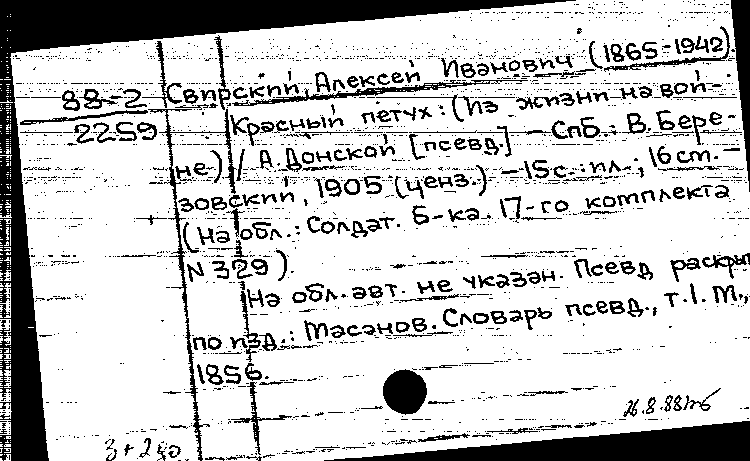 Свирский, Алексей Иванович (1865-1942).
88-2
2259
Красный петух: (Из жизни на вой-
не) / А. Донской [псевд.] - Спб.: В. Бере-
зовский, 1905 (ценз.) - 15 с.: ил.; 16 ст. -
(На обл.: Солдат. б-ка. 17-го комплекта
N 329).
На обл. авт. не указан. Псевд раскрыт
по изд.: Масанов. Словарь псевд., т. 1. М.,
1856.
26.8.88
3 + 2